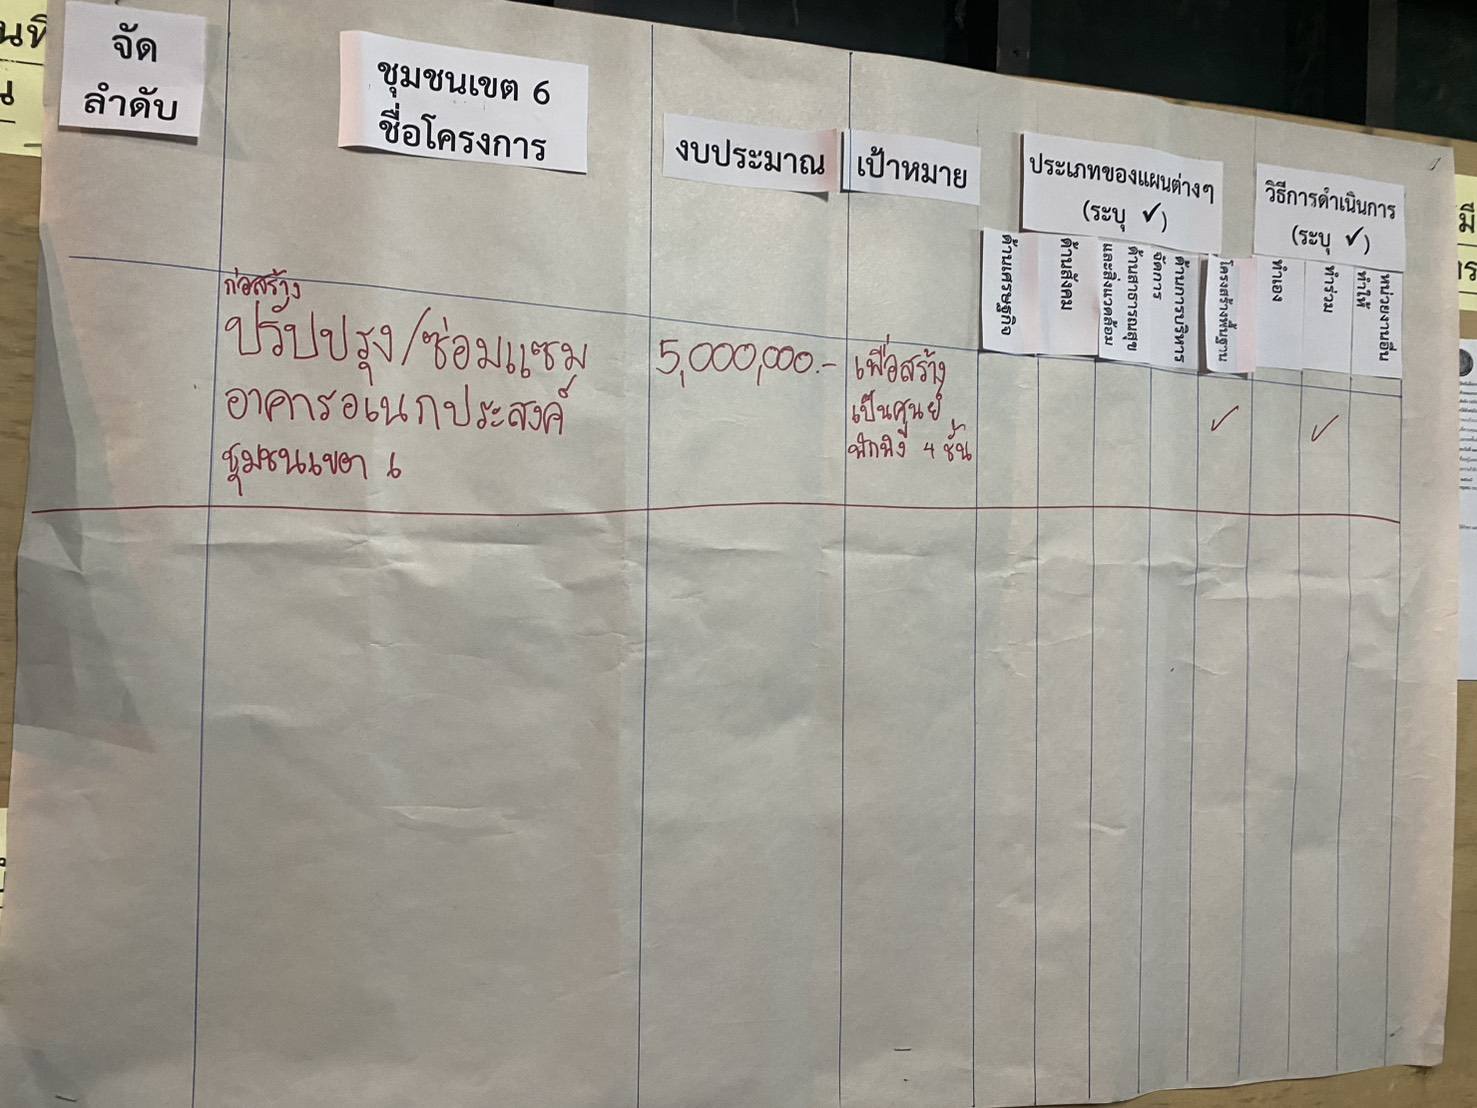 จัด
ลำดับ
ชุมชนเขต 6
ชื่อโครงการ
งบประมาณ
เป้าหมาย
ประเภทของแผนต่างๆ
(ระบุ ✓)
วิธีการดำเนินการ
(ระบุ ✓)
ด้านเศรษฐกิจ
ด้านสังคม
ด้านสาธารณสุข
และสิ่งแวดล้อม
ด้านการบริหาร
จัดการ
โครงสร้างพื้นฐาน
ทำเอง
ทำร่วม
หน่วยงานอื่น
ทำให้
ก่อสร้าง
ปรับปรุง/ซ่อมแซม
อาคารอเนกประสงค์
ชุมชนเขต ๖
5,000,000.-
เพื่อสร้าง
เป็นศูนย์
พักพิง 4 ชั้น
✓
✓